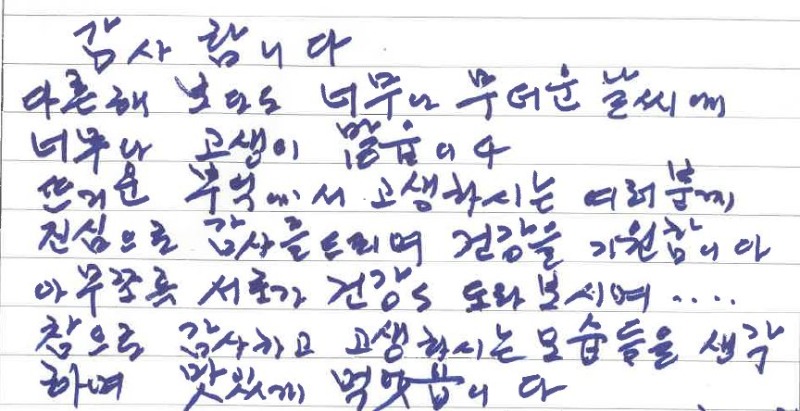 감사 합니다
다른해 보다도 너무나 무더운 날씨에
너무나 고생이 많읍니다
뜨거운 부억에서 고생하시는 여러분께
진심으로 감사를드리며 건강을 기원합니다
아무쪼록 서로가 건강도 도와보시며 ....
참으로 감사하고 고생하시는 모습들을 생각
하며 맛있게 먹었읍니다